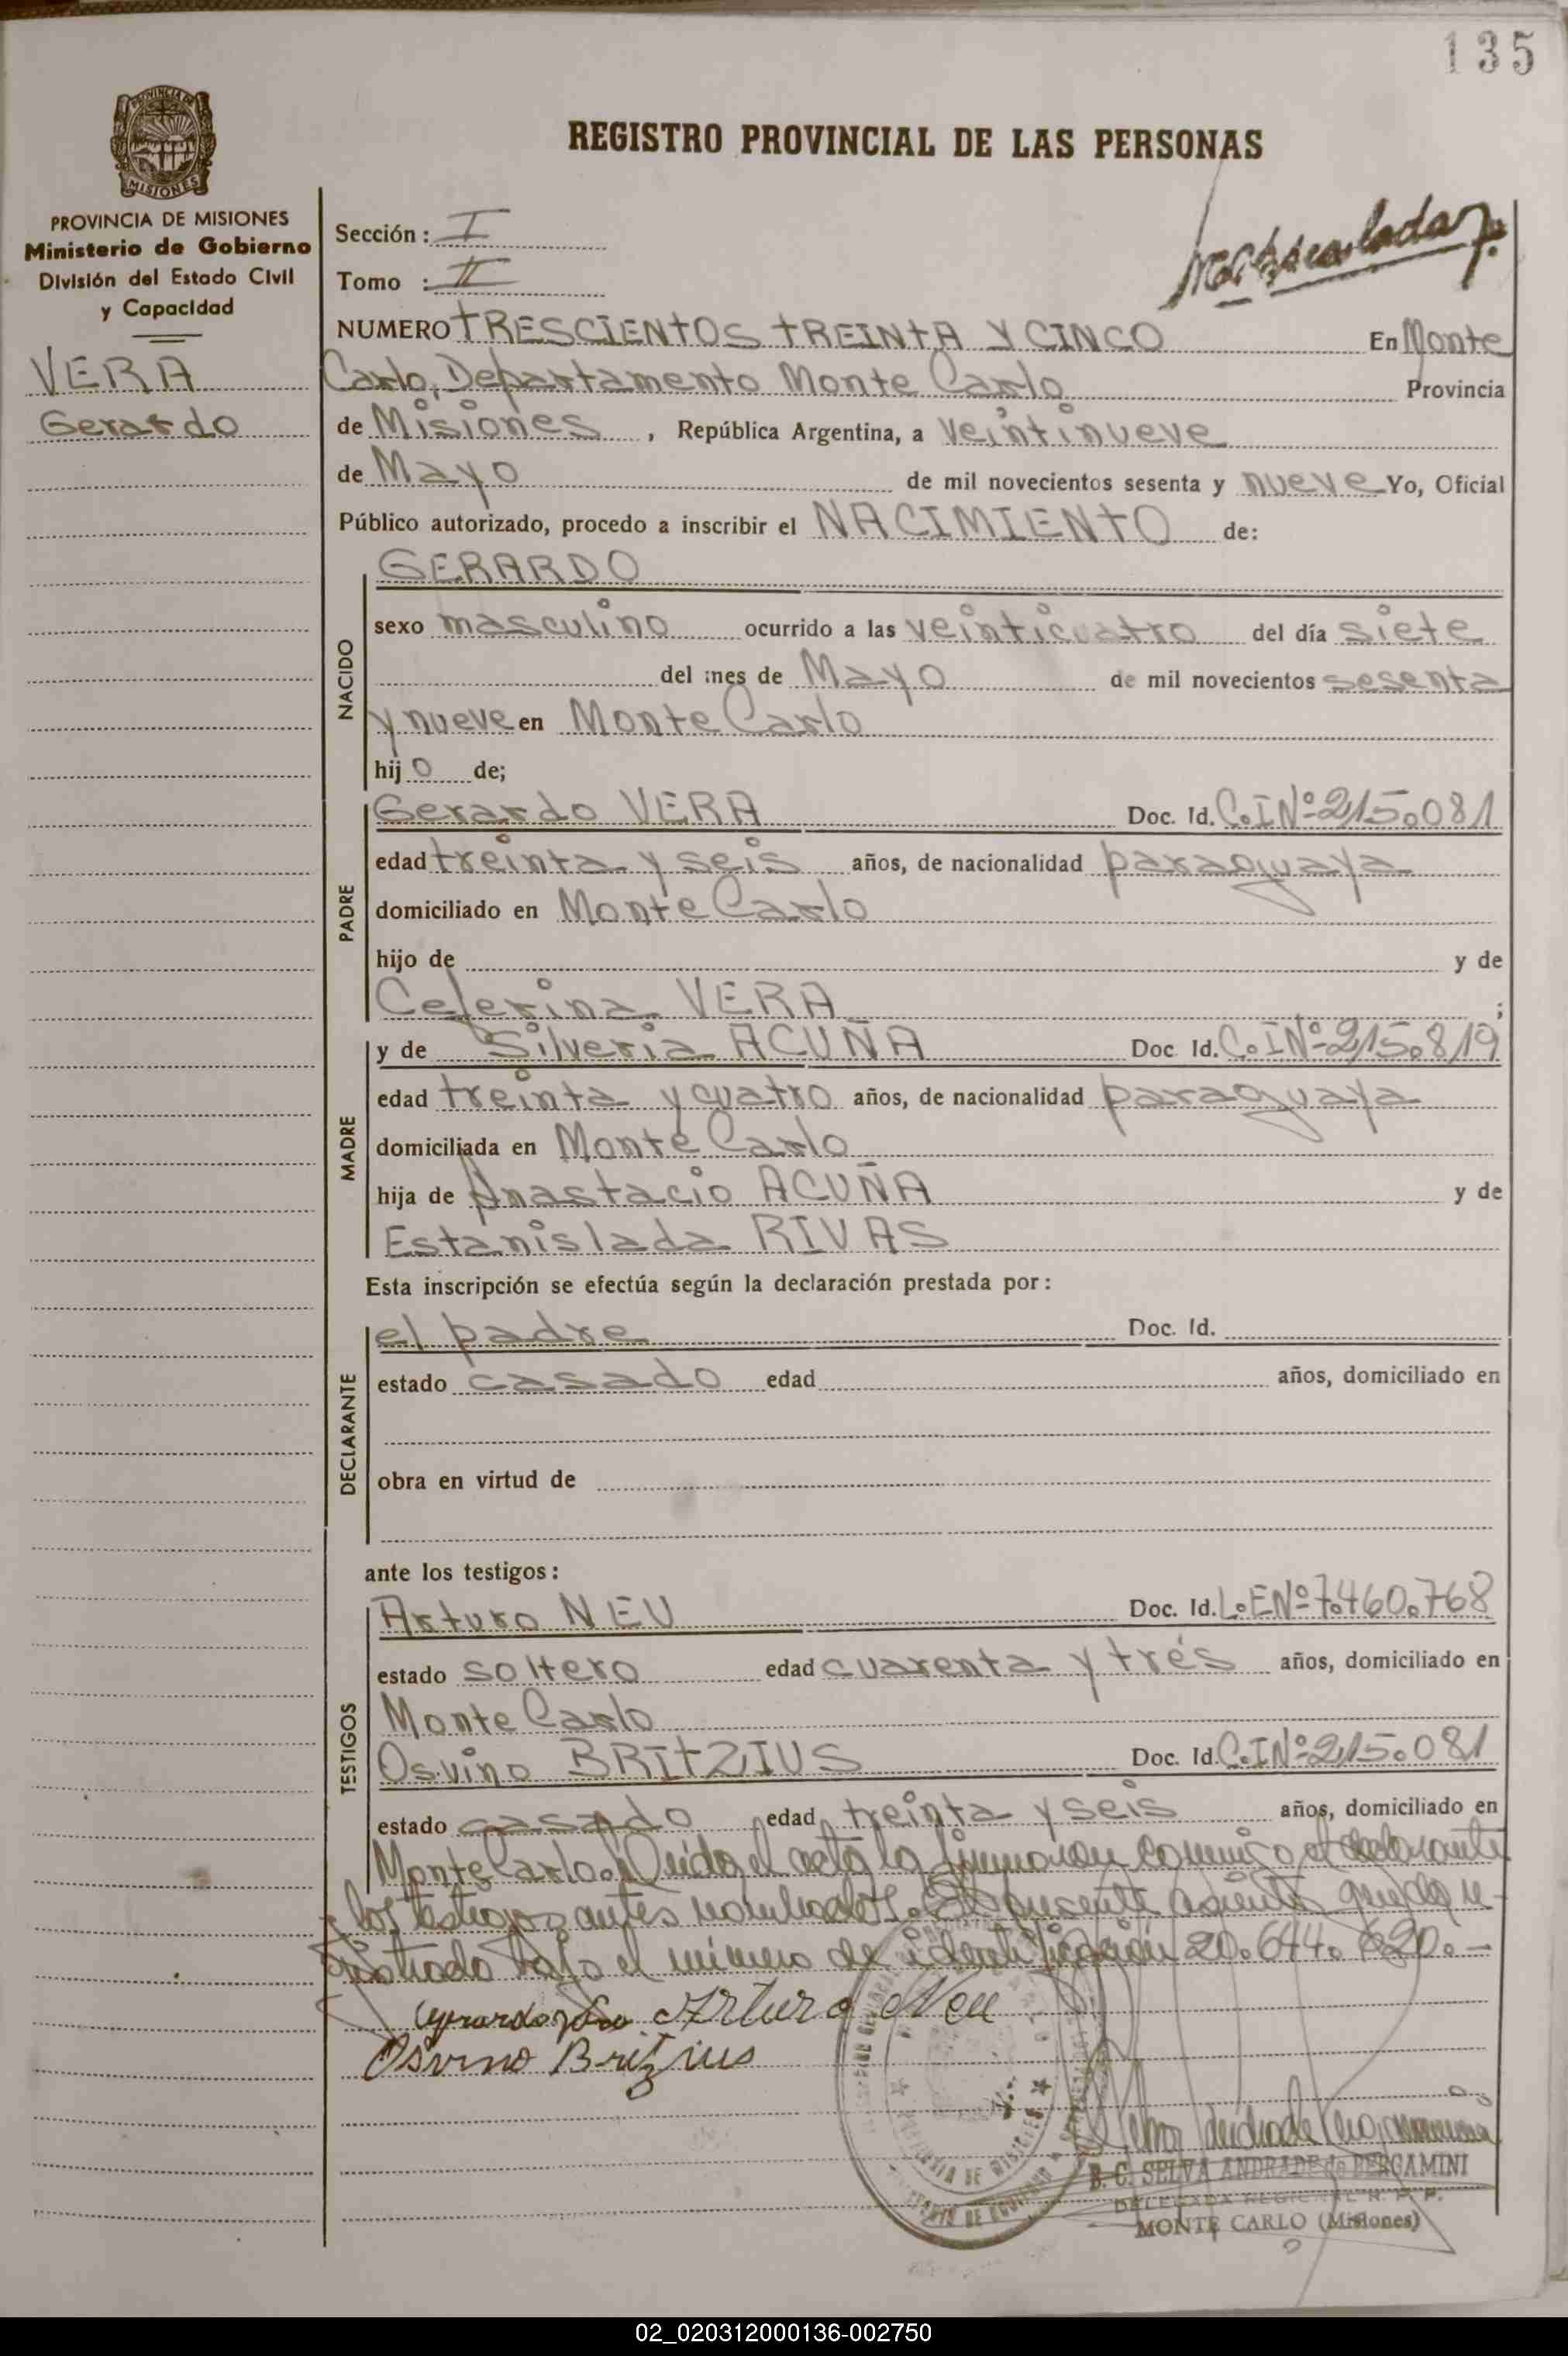 135
REGISTRO PROVINCIAL DE LAS PERSONAS
PROVINCIA DE MISIONES
MISIONES
PROVINCIA DE MISIONES
Ministerio de Gobierno
División del Estado Civil
y Capacidad
VERA
Gerardo
Sección : I
Tomo : II
NUMERO TRESCIENTOS TREINTA Y CINCO En Monte
Carlo, Departamento Monte Carlo Provincia
de Misiones, República Argentina, a veintinueve
de Mayo de mil novecientos sesenta y nueve Yo, Oficial
Público autorizado, procedo a inscribir el NACIMIENTO de:
NACIDO
GERARDO
sexo masculino ocurrido a las veinticuatro del día siete
del mes de Mayo de mil novecientos sesenta
y nueve en Monte Carlo
hijo de;
PADRE
Gerardo VERA Doc. Id. C.I Nº 215.081
edad treinta y seis años, de nacionalidad paraguaya
domiciliado en Monte Carlo
hijo de y de
Ceferina VERA ;
MADRE
y de Silveria ACUÑA Doc Id. C.I Nº 215.819
edad treinta y cuatro años, de nacionalidad paraguaya
domiciliada en Monte Carlo
hija de Anastacio ACUÑA y de
Estanislada RIVAS
Esta inscripción se efectúa según la declaración prestada por :
DECLARANTE
el padre Doc. Id.
estado casado edad años, domiciliado en
obra en virtud de
ante los testigos :
TESTIGOS
Arturo NEU Doc. Id. L.E Nº 7.460.768
estado soltero edad cuarenta y trés años, domiciliado en
Monte Carlo
Osvino BRITZIUS Doc. Id. C.I Nº 215.081
estado casado edad treinta y seis años, domiciliado en
Monte Carlo. Leida el acta la firmaron conmigo el declarante
y los testigos antes nombrados. El presente asiento queda re-
gistrado bajo el número de identificación 20.644.
Gerardo Vera Arturo Neu
Osvino Britzius
B. C. SELVA ANDRADE de BERGAMINI
DELEGADA REGIONAL R. P. P.
MONTE CARLO (Misiones)
02_020312000136-002750